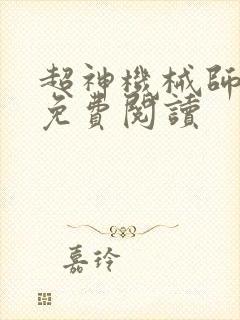 超神機械師
免費閱讀
嘉玲